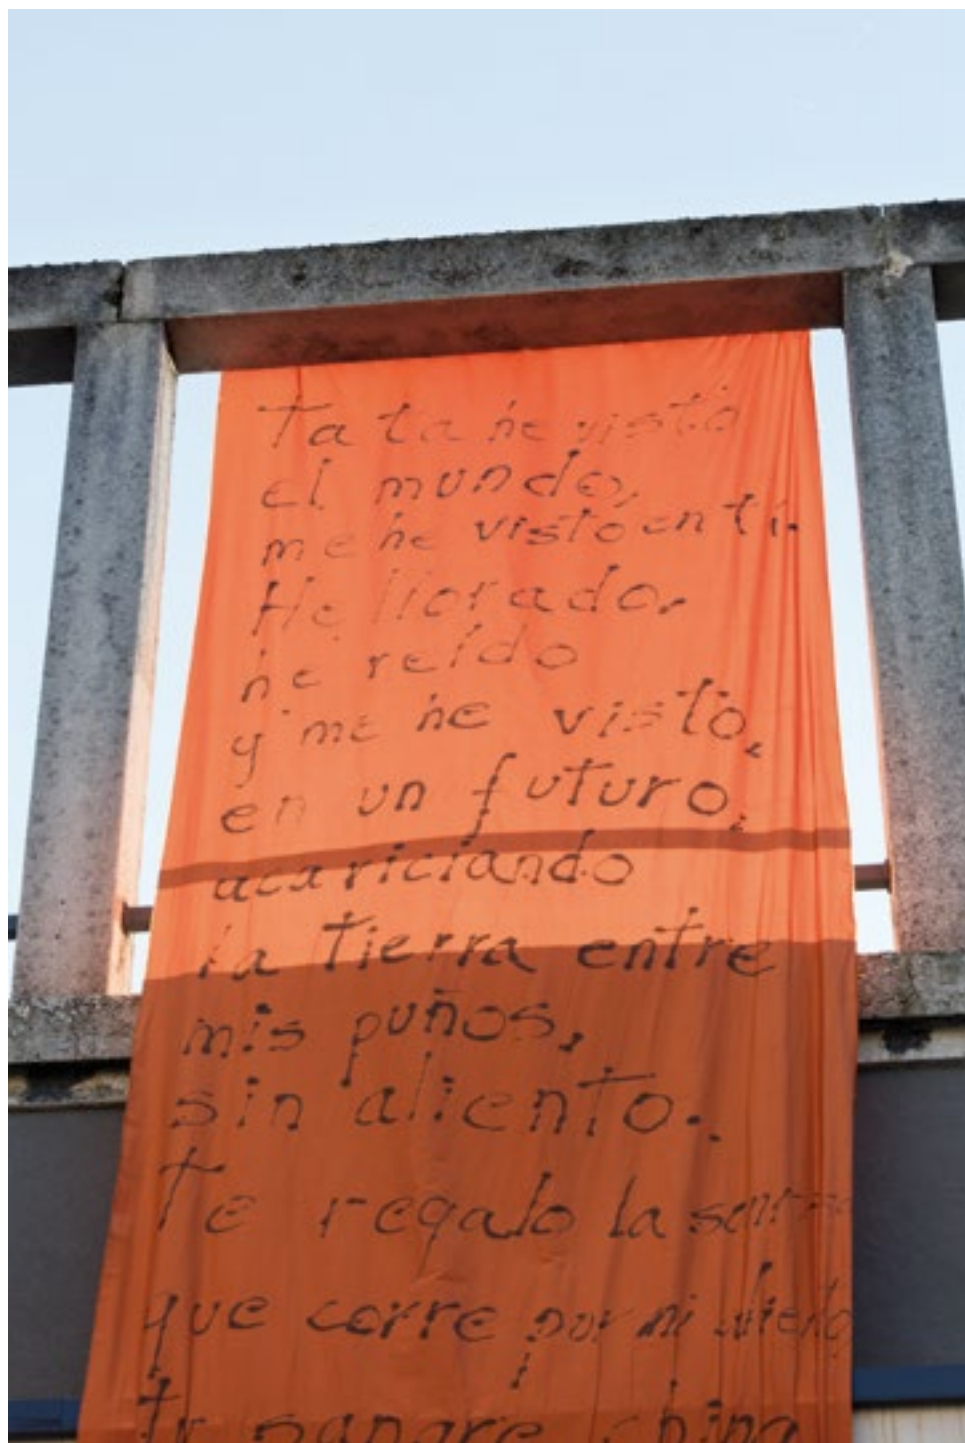 Tata he visto
el mundo,
me he visto en ti.
He llorado,
he reído
y me he visto,
en un futuro,
acariciando
la tierra entre
mis puños,
sin aliento.
Te regalo la
que corre por mi
tu sangre china